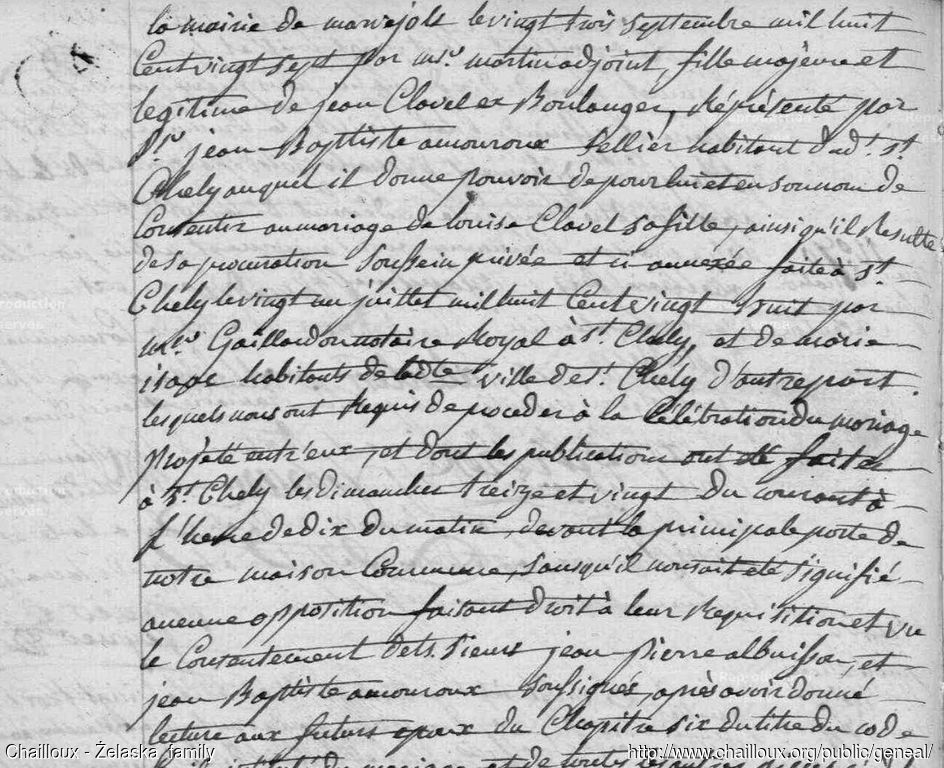 la mairie de marvejols le vingt trois septembre mil huit
Cent vingt sept par mr. martin adjoint, fille majeure et
legitime de jean Clavel ex Boulanger, Réprésenté par
Sr. jean Baptiste amouroux Sellier habitant dud. st.
Chely auquel il donne pouvoir de pour lui et en son nom de
Consentir au mariage de louise Clavel sa fille, ainsi qu'il Résulte
de sa procuration soussein privée et ci annexée faite a st.
Chely le vingt un juillet mil huit Cent vingt huit par
mr. Gaillardon notaire Royal à st. Chely, et de marie
isaac habitants de ladte ville de st. Chely d'autre part.
lesquels nous ont Requis de proceder à la Célébration du mariage
projété entr'eux, et dont les publications ont été faites
à st. Chely les dimanches treize et vingt du courant à
l'heure de dix du matin, devant la principale porte de
notre maison Commune, sans qu'il nous ait été signifié
aucune opposition faisant droit à leur Requisition et vu
le Consentement dets. sieurs jean pierre albuisson, et
jean Baptiste amouroux soussignés, après avoir donné
lecture aux futurs epoux du Chapitre six du titre du code
du mariage et de toutes
Chailloux - Żelaska family
http://www.chailloux.org/public/geneal/